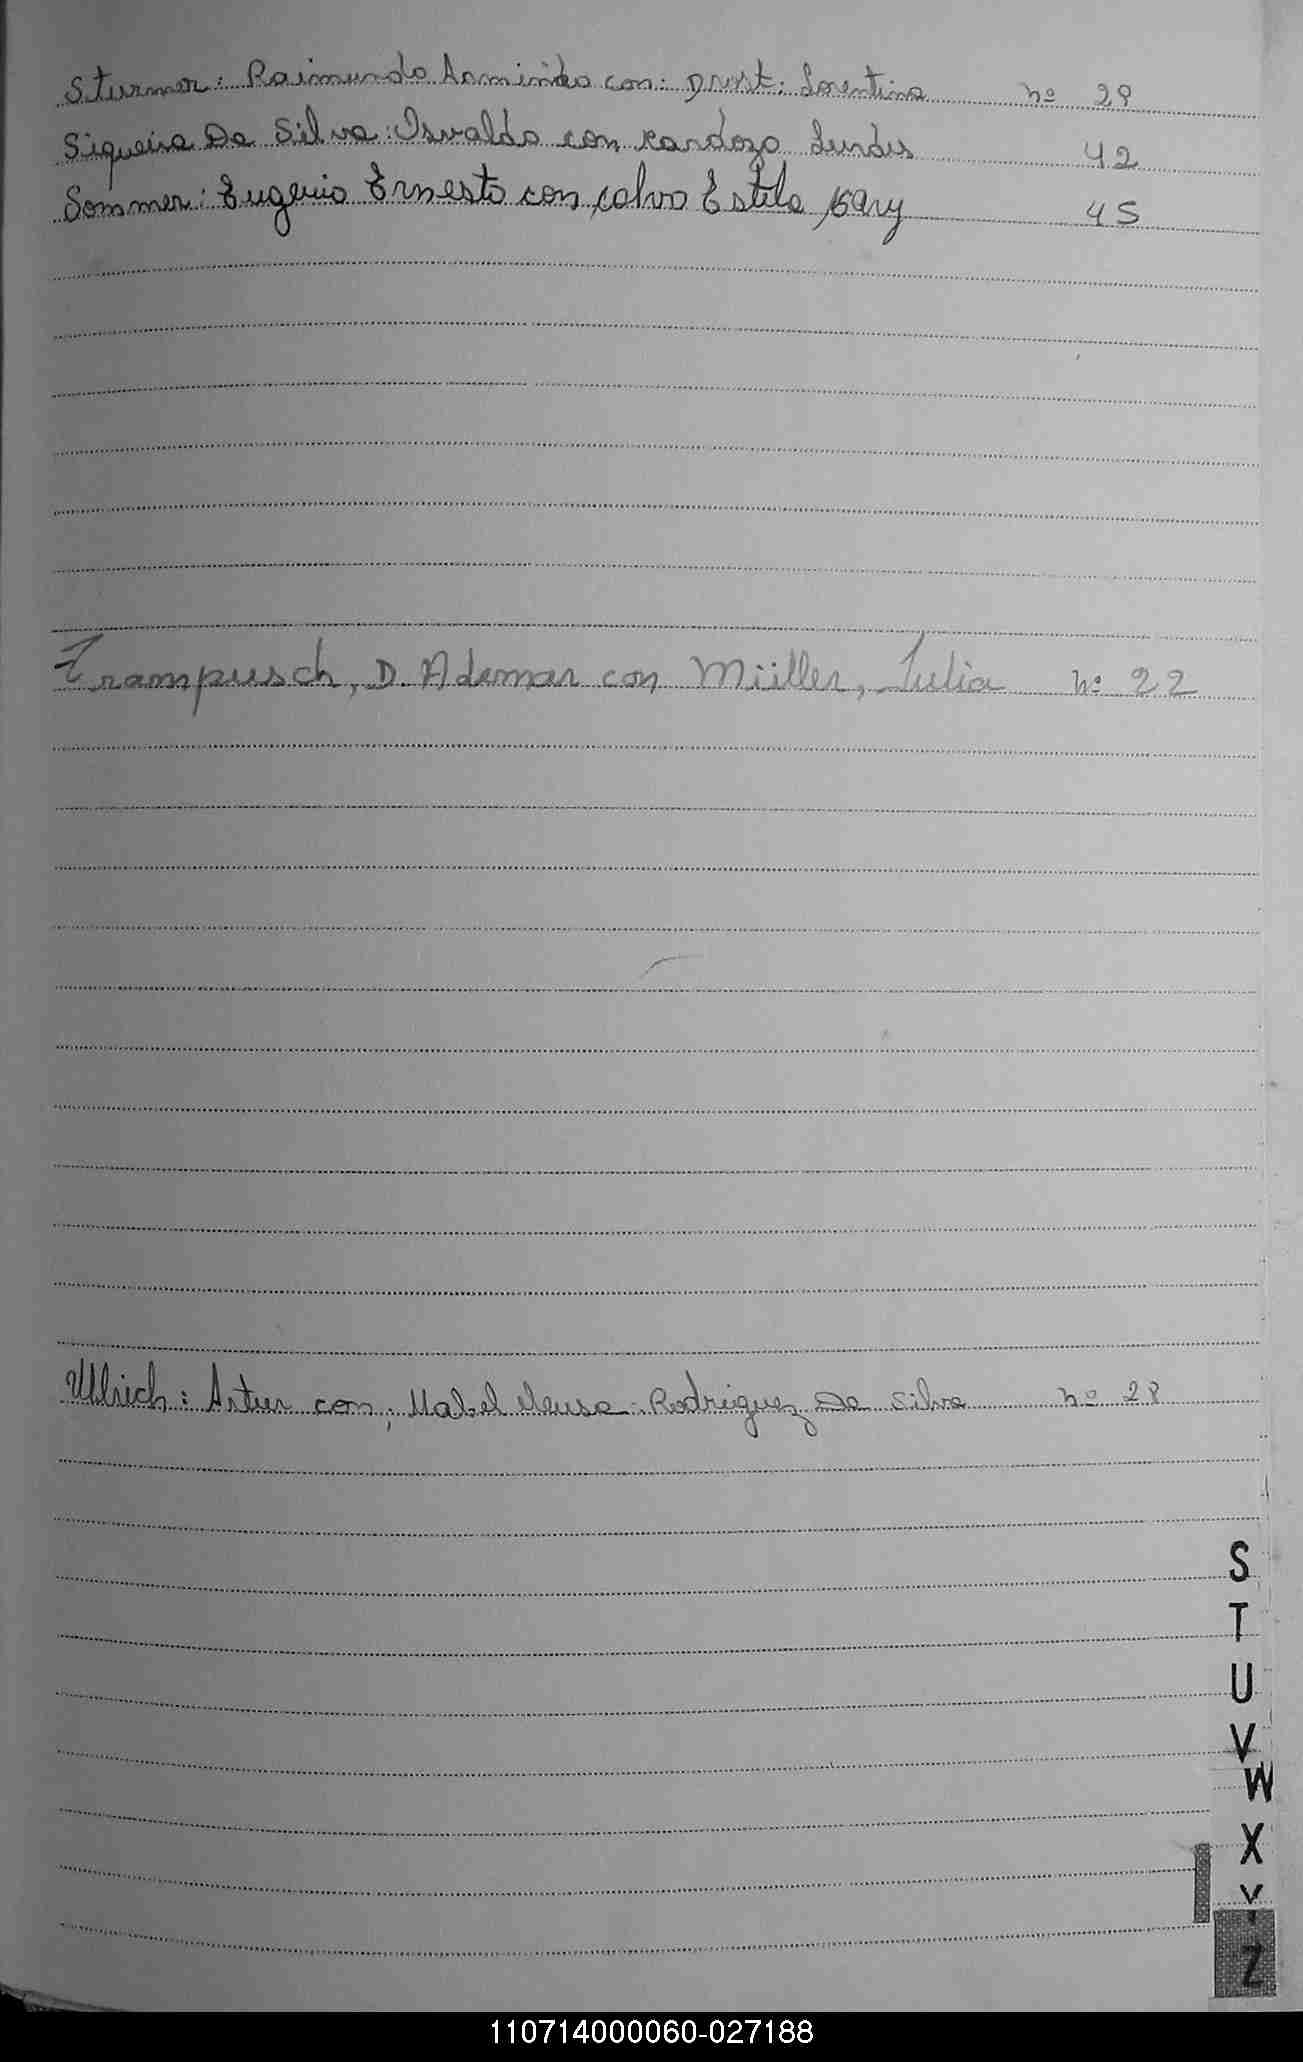 Sturmer: Raimundo Armindo con: Drost: Lorentina nº 28
Siqueira Da Silva: Isvaldo con Kardozo Lurdes 42
Sommer: Eugenio Ernesto con, calvo Estela 45
Trampusch, D. Ademar con Müller, Julia nº 22
Ullrich: Artur con, Mabel Neusa: Rodriguez Da Silva nº 28
S
T
U
V
W
X
Y
Z
110714000060-027188